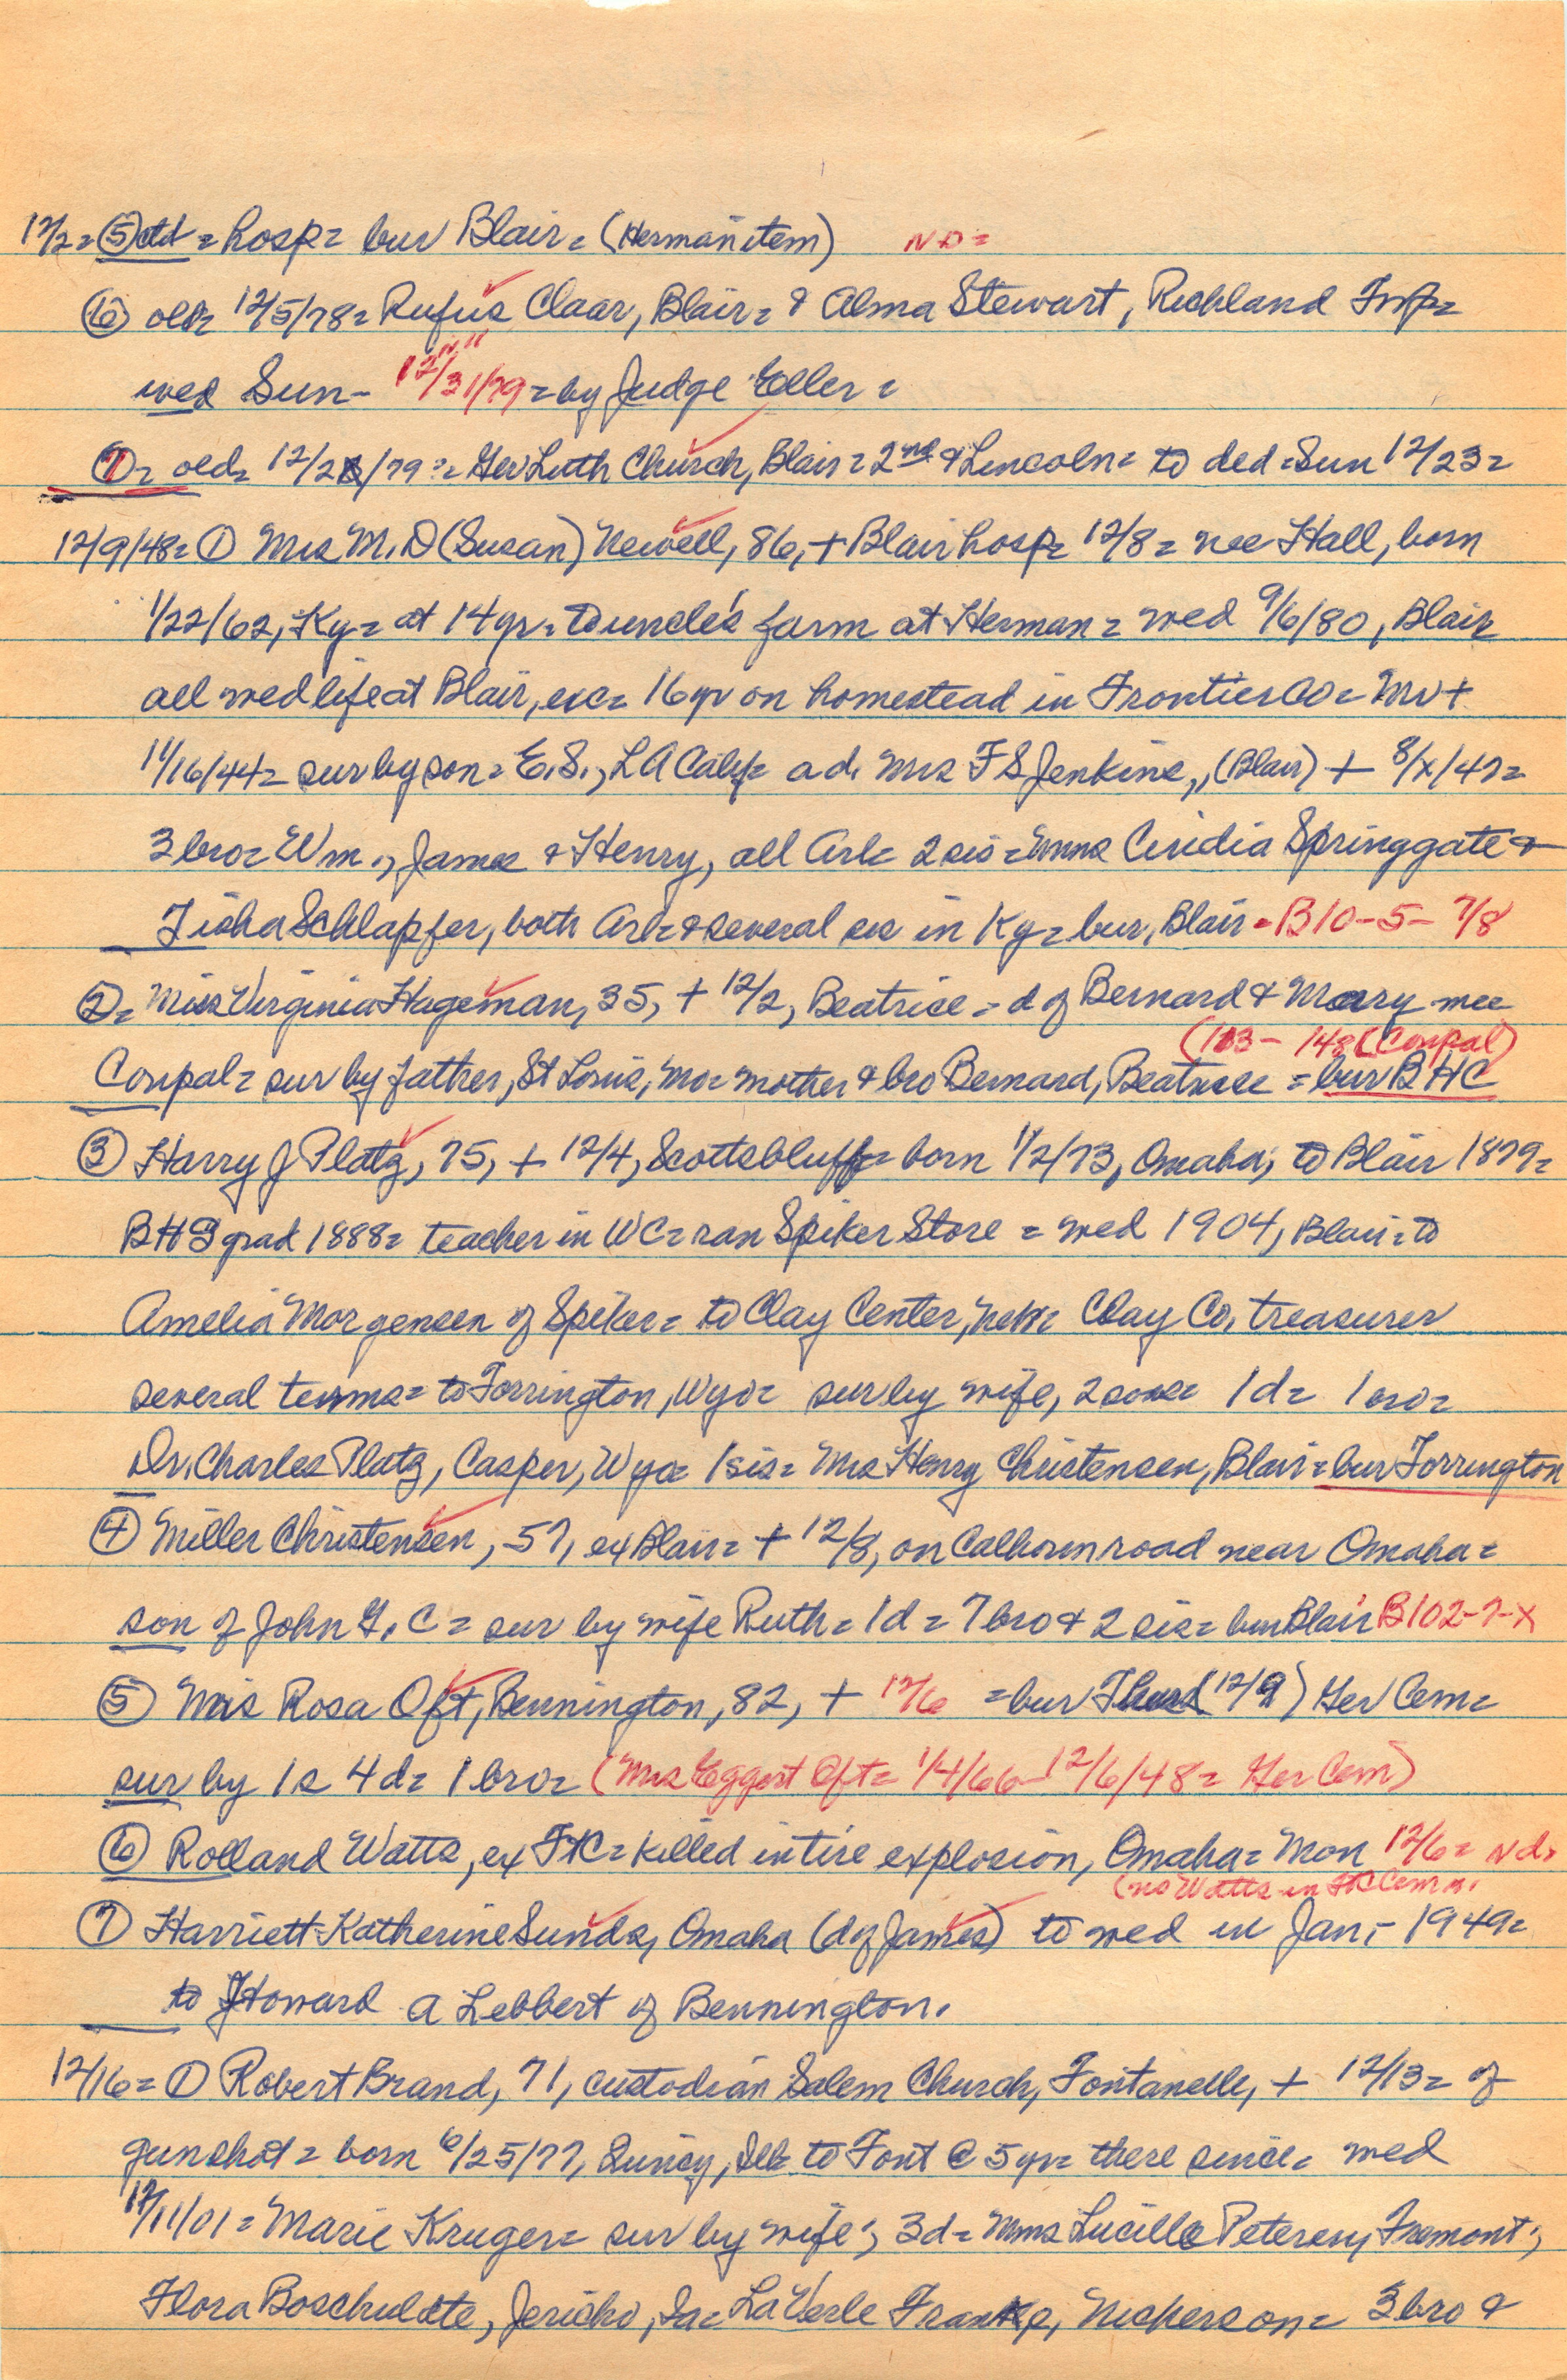 12/2 = ⑤ ctd = hosp = bur Blair = (Herman item) ND =
⑥ old = 12/5/78 = Rufus Claar, Blair = & Alma Stewart, Richland Twp =
wed Sun - 12/31/79 = by Judge Eller =
⑦ = old = 12/2 /79 = Ger Luth Church, Blair = 2nd & Lincoln = to ded = Sun 12/23 =
12/9/48 = ① Mrs M. D (Susan) Newell, 86, + Blair hosp = 12/8 = nee Hall, born
1/22/62, Ky = at 14 yr = to uncle's farm at Herman = wed 9/6/80, Blair
all wed life at Blair, exc = 16 yr on homestead in Frontier Co = Mr +
11/16/44 = sur by son = E. S., LA Calif = a d. Mrs F S Jenkins, (Blair) + 8/x/47 =
3 bro = Wm., James & Henry, all Ark = 2 sis = Mmes Ciridia Springgate &
Tisha Schlapfer, both Ark = & several sis in Ky = bur, Blair = B10-5-7/8
② = Miss Virginia Hageman, 35, + 12/2, Beatrice = d of Bernard & Mary nee
(103 - 148 (Conpal)
Conpal = sur by father, St Louis, Mo = mother & bro Bernard, Beatrice = bur BHC
③ Harry J Platz, 75, + 12/4, Scottsbluff = born 1/2/73, Omaha; to Blair 1879 =
BHS grad 1888 = teacher in WC = ran Spiker Store = wed 1904, Blair = to
Amelia Morgensen of Spiker = to Clay Center, Neb = Clay Co. treasurer
several terms = to Torrington, Wyo = sur by wife, 2 sons = 1 d = 1 bro =
Dr. Charles Platz, Casper, Wyo = 1 sis = Mrs Henry Christensen, Blair = bur Torrington
④ Miller Christensen, 57, ex Blair = + 12/8, on Calhoun road near Omaha =
son of John G. C = sur by wife Ruth = 1 d = 7 bro & 2 sis = bur Blair B102-7-X
⑤ Mrs Rosa Oft, Bennington, 82, + 12/6 = bur Thurs (12/9) Ger Cem =
sur by 1 s 4 d = 1 bro = (Mrs Eggert Oft = 1/4/66 - 12/6/48 = Ger Cem)
⑥ Rolland Watts, ex FtC = killed in tire explosion, Omaha = Mon 12/6 = Nd.
(no Watts in FtC Cem
⑦ Harriett Katherine Sunds, Omaha (d of James) to wed in Jan, - 1949 =
to Howard A Lebbert of Bennington.
12/16 = ① Robert Brand, 71, custodian Salem Church, Fontanelle, + 12/13 = of
gunshot = born 6/25/77, Quincy, Ill = to Font @ 5 yr = there since = wed
12/11/01 = Marie Kruger = sur by wife; 3 d = Mmes Lucille Petersen, Fremont;
Flora Boschuldte, Jericho, Ia = LaVerle Franke, Nickerson = 3 bro &